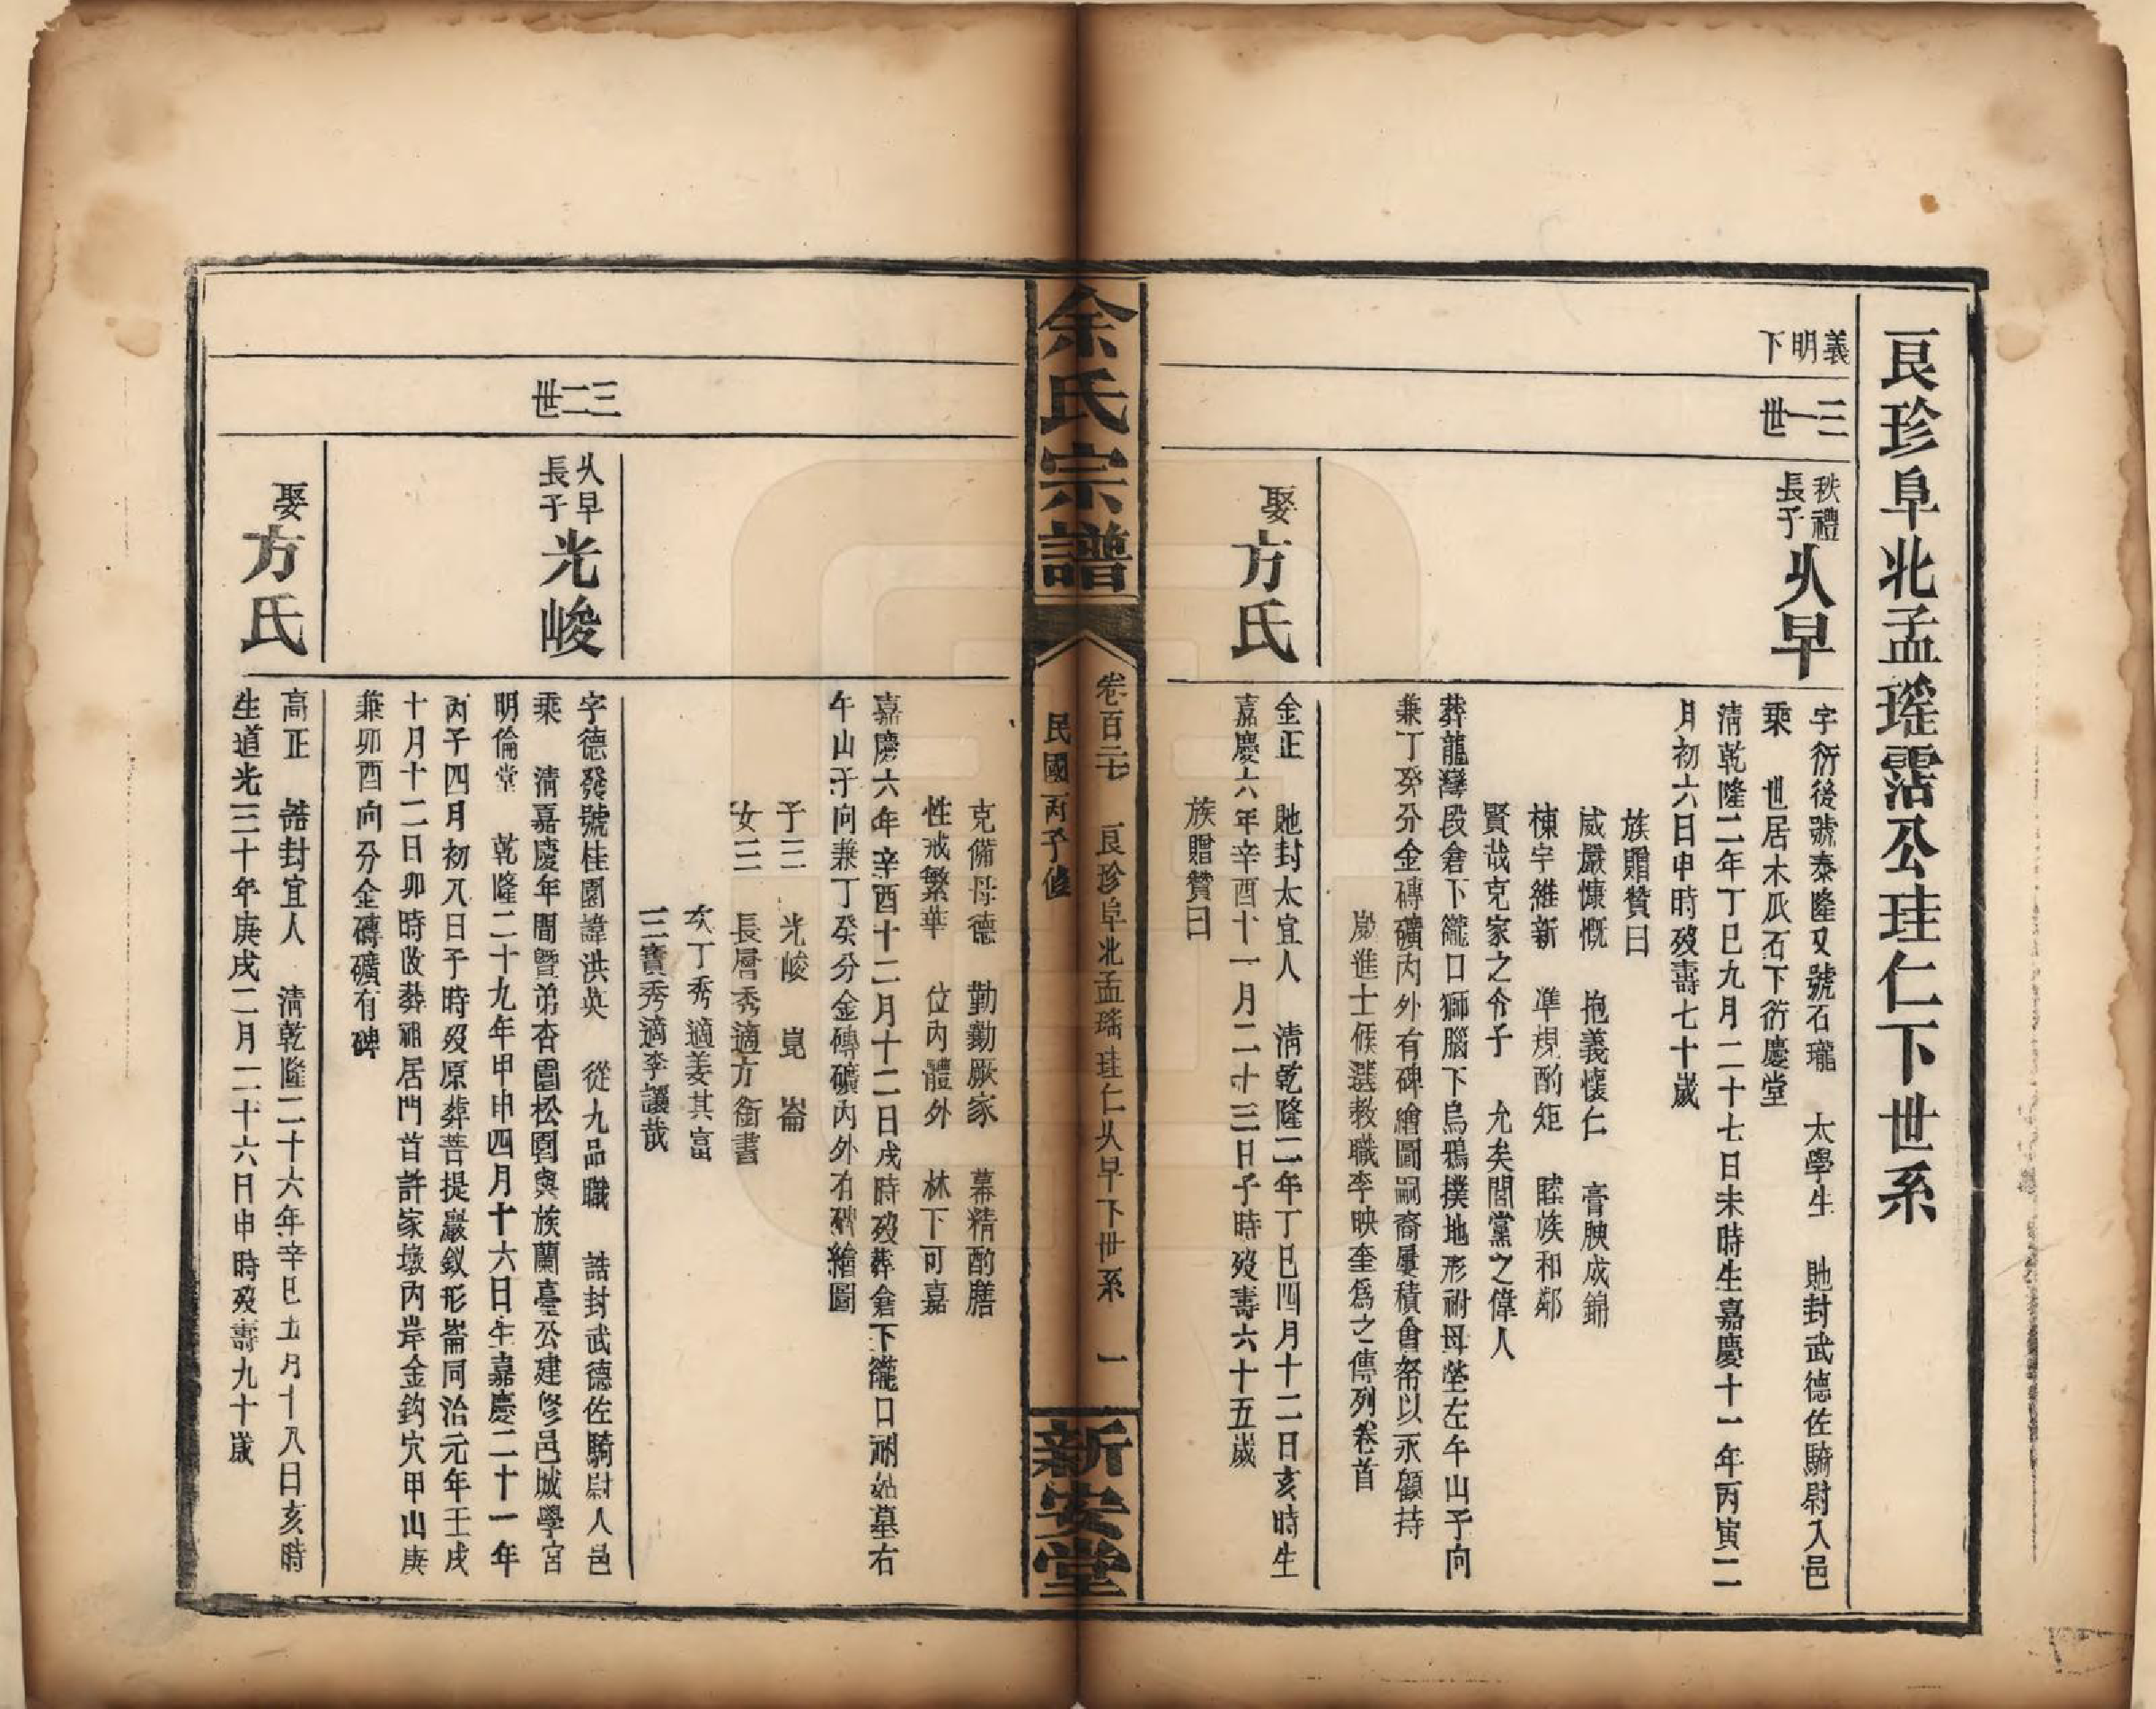 良珍阜北孟瑤霑公珪仁下世系
義明下
三一世
秩禮長子 火早
字衍後號泰隆又號石瓏 太學生 貤封武德佐騎尉入邑
乘 世居木瓜石下衍慶堂
清乾隆二年丁巳九月二十七日未時生嘉慶十一年丙寅二
月初六日申時歿壽七十歲
族贈贊曰
威嚴慷慨 抱義懷仁 膏腴成錦
棟宇維新 準規酌矩 睦族和鄰
賢哉克家之令子 允矣閭黨之偉人
葬龍灣段倉下巃口獅腦下烏鴉撲地形祔母塋左午山子向
兼丁癸分金磚礦內外有碑繪圖嗣裔屢積會帑以永顧持
歲進士候選教職李映奎為之傳列卷首
娶方氏
金正 貤封太宜人 清乾隆二年丁巳四月十二日亥時生
嘉慶六年辛酉十一月二十三日子時歿壽六十五歲
族贈贊曰
余氏宗譜
卷百二七 良珍阜北孟瑤珪仁火早下世系 一
民國丙子修
新安堂
克備母德 勤勷厥家 幕精酌膳
性戒繁華 位內體外 林下可嘉
嘉慶六年辛酉十二月十二日戌時歿葬倉下巃口祔姑墓右
午山子向兼丁癸分金磚礦內外有碑繪圖
子三 光峻 崑 崙
女三 長層秀適方銜書
次丁秀適姜其富
三寶秀適李讓哉
三二世
火早長子 光峻
字德發號桂園諱洪英 從九品職 誥封武德佐騎尉人邑
乘 清嘉慶年間暨弟杏園松園與族蘭臺公建修邑城學宮
明倫堂 乾隆二十九年甲申四月十六日生嘉慶二十一年
丙子四月初八日子時歿原葬菩提巖釵形崙同治元年壬戌
十月十二日卯時改葬祖居門首許家墩內岸金鈎穴甲山庚
兼卯酉向分金磚礦有碑
娶方氏
高正 誥封宜人 清乾隆二十六年辛巳五月十八日亥時
生道光三十年庚戌二月二十六日申時歿壽九十歲